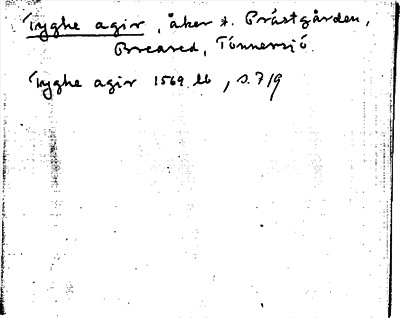 Tyghe agir, åker *. Prästgården,
Breared, Tönnersjö.
Tyghe agir 1569 lb, s. 719